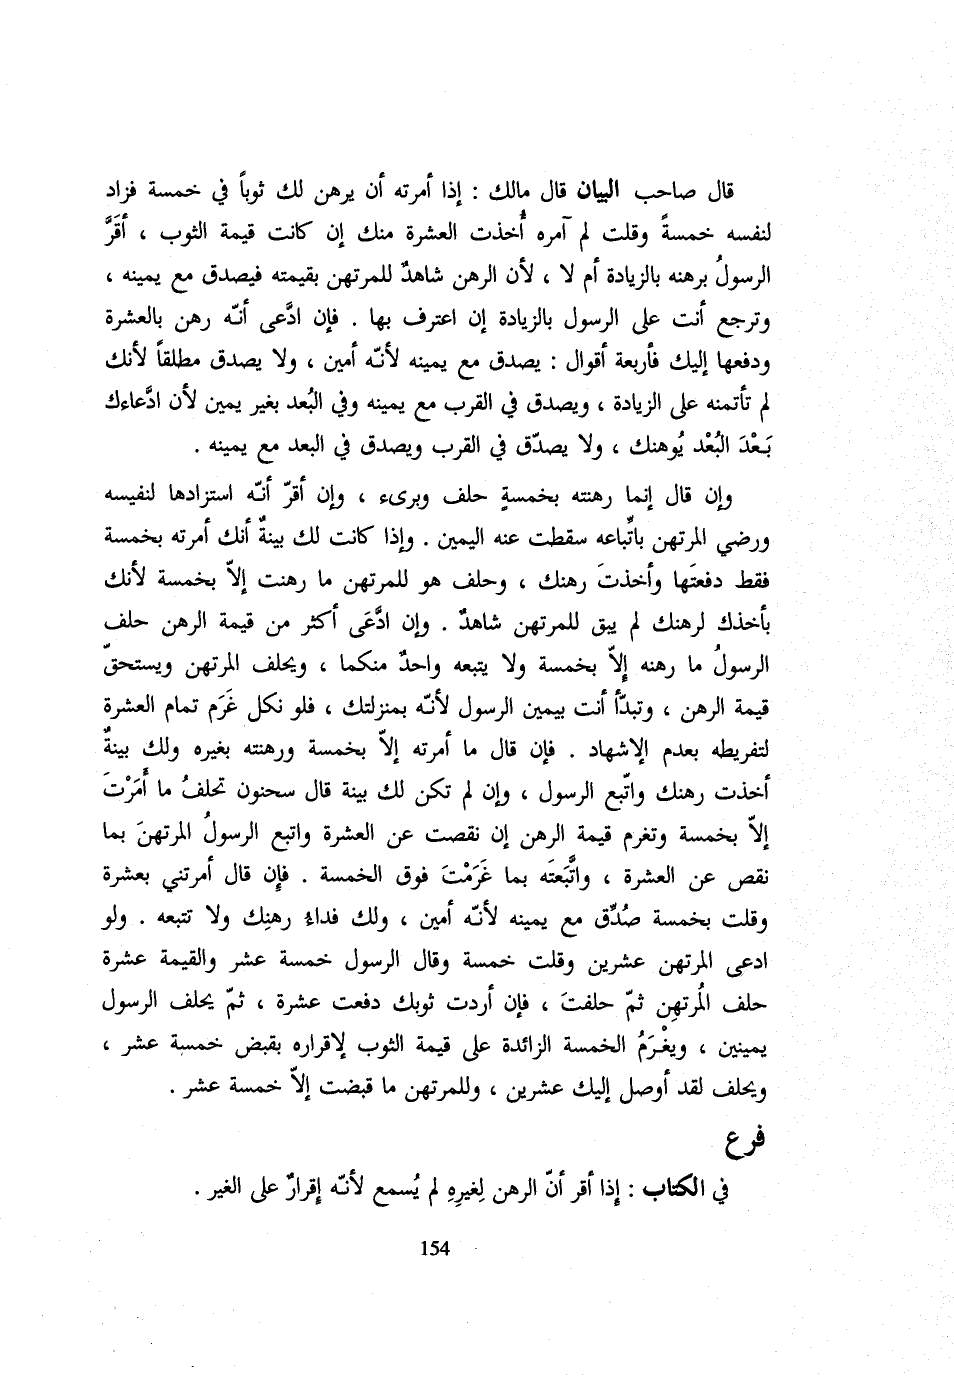 قال صاحب البيان قال مالك : إذا أمرته أن يرهن لك ثوباً في خمسة فزاد
لنفسه خمسةً وقلت لم آمره أُخذت العشرة منك إن كانت قيمة الثوب ، أقَرَّ
الرسولُ برهنه بالزيادة أم لا ، لأن الرهن شاهدٌ للمرتهن بقيمته فيصدق مع يمينه ،
وترجع أنت على الرسول بالزيادة إن اعترف بها . فإن ادَّعى أنّه رهن بالعشرة
ودفعها إليك فأربعة أقوال : يصدق مع يمينه لأنّه أمين ، ولا يصدق مطلقاً لأنك
لم تأتمنه على الزيادة ، ويصدق في القرب مع يمينه وفي البُعد بغير يمين لأن ادَّعاءك
بَعْدَ البُعْد يُوهنك ، ولا يصدّق في القرب ويصدق في البعد مع يمينه .
وإن قال إنما رهنته بخمسةٍ حلف وبرىء ، وإن أقرّ أنّه استزادها لنفيسه
ورضي المرتهن باتِّباعه سقطت عنه اليمين . وإذا كانت لك بينةٌ أنك أمرته بخمسة
فقط دفعتَها وأخذتَ رهنك ، وحلف هو للمرتهن ما رهنت إلاّ بخمسة لأنك
بأخذك لرهنك لم يبق للمرتهن شاهدٌ . وإن ادَّعَى أكثر من قيمة الرهن حلف
الرسولُ ما رهنه إلاّ بخمسة ولا يتبعه واحدٌ منكما ، ويحلف المرتهن ويستحقّ
قيمة الرهن ، وتبدّأ أنت بيمين الرسول لأنّه بمنزلتك ، فلو نكل غَرَم تمام العشرة
لتفريطه بعدم الإشهاد . فإن قال ما أمرته إلاّ بخمسة ورهنته بغيره ولك بينةٌ
أخذت رهنك واتّبع الرسول ، وإن لم تكن لك بينة قال سحنون تحلفُ ما أَمَرْتَ
إلاّ بخمسة وتغرم قيمة الرهن إن نقصت عن العشرة واتبع الرسولُ المرتهنَ بما
نقص عن العشرة ، واتَّبَعتَه بما غَرَمْتَ فوق الخمسة . فإن قال أمرتني بعشرة
وقلت بخمسة صُدِّق مع يمينه لأنّه أمين ، ولك فداءُ رهنِك ولا تتبعه . ولو
ادعى المرتهن عشرين وقلت خمسة وقال الرسول خمسة عشر والقيمة عشرة
حلف المُرتهِن ثمّ حلفتَ ، فإن أردت ثوبك دفعت عشرة ، ثمّ يحلف الرسول
يمينين ، ويغْرَمُ الخمسة الزائدة على قيمة الثوب لإقراره بقبض خمسة عشر ،
ويحلف لقد أوصل إليك عشرين ، وللمرتهن ما قبضت إلاّ خمسة عشر .
فرع
في الكتاب : إذا أقر أنّ الرهن لِغيرِهِ لم يُسمع لأنّه إقرارٌ على الغير .
154